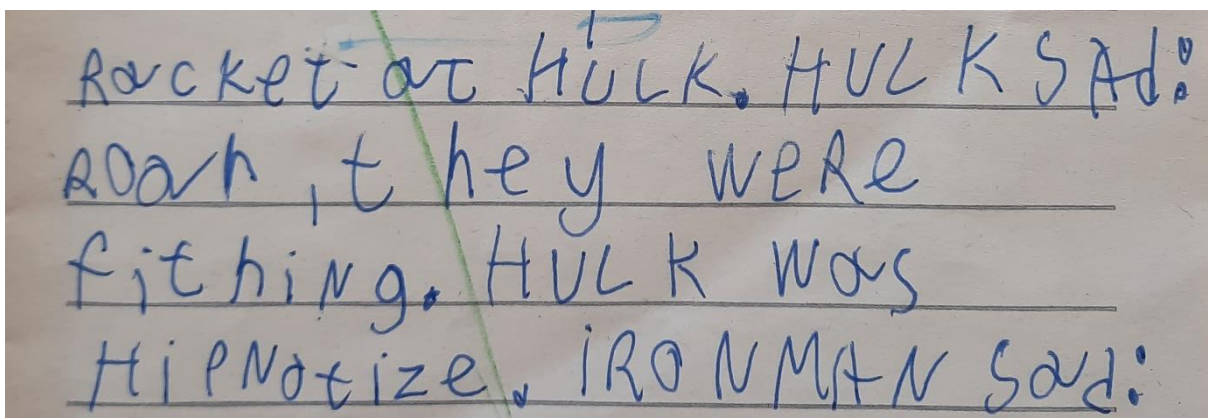 Racket at HULK. HULK SAd:
ROah, they weRe
fithiNg. HULK was
HipNotize. iRONMAN sad: